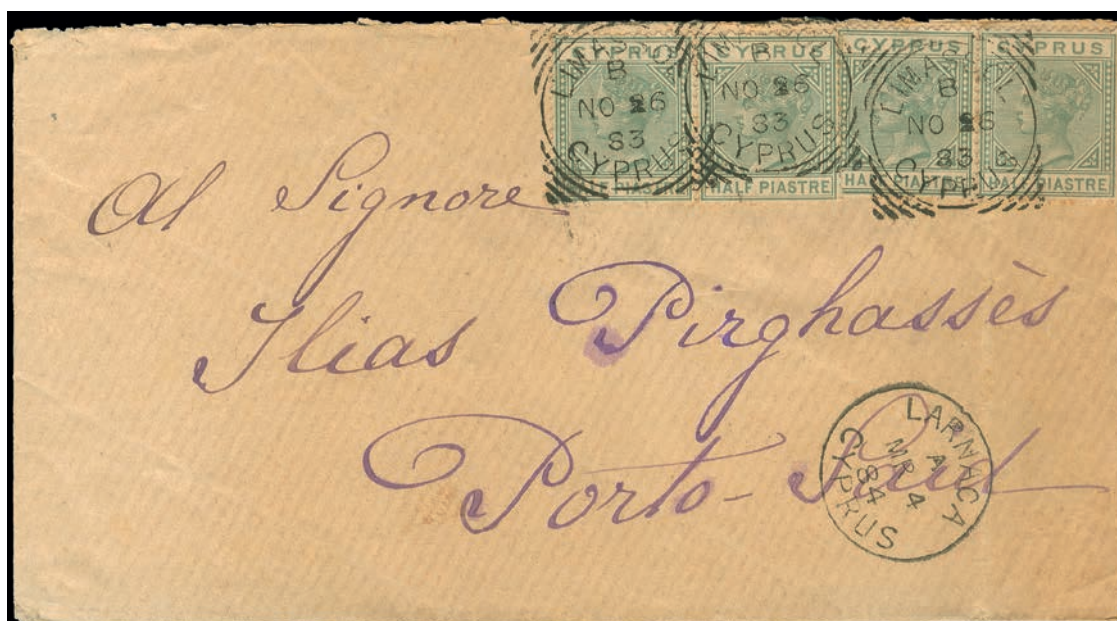 CYPRUS CYPRUS CYPRUS CYPRUS
HALF PIASTRE HALF PIASTRE HALF PIASTRE HALF PIASTRE
LIMASSOL
B
NO 26
83
CYPRUS
LIMASSOL
B
NO 26
83
CYPRUS
LIMASSOL
B
NO 26
83
CYPRUS
Al Signore
Ilias Pirghassès
Porto-
LARNACA
A
MR 4
84
CYPRUS